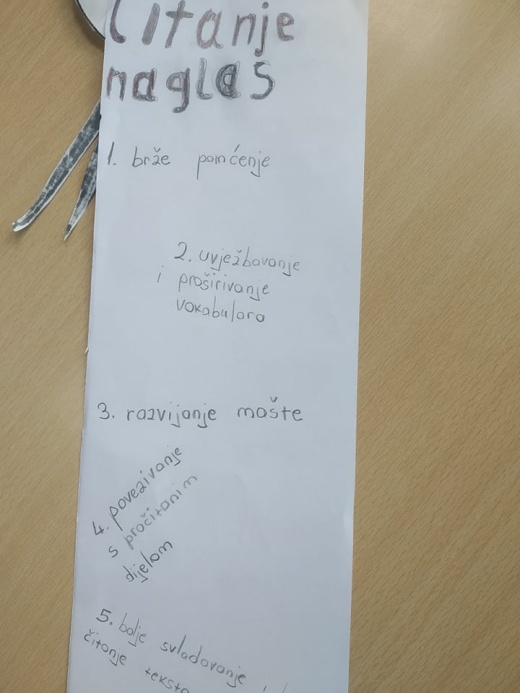 Čitanje
naglas
1. brže pamćenje
2. uvježbavanje
i proširivanje
vokabulara
3. razvijanje mašte
4. povezivanje
s pročitanim
dijelom
5. bolje svladavanje
čitanje teksta